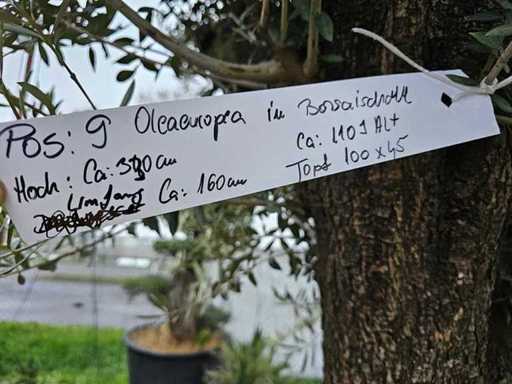 Pos: 9 Oleaeuropea in Bonsaischnitt
Hoch: Ca: 390 cm Ca: 110 J Alt
Umfang Ca: 160 cm Topf 100 x 45